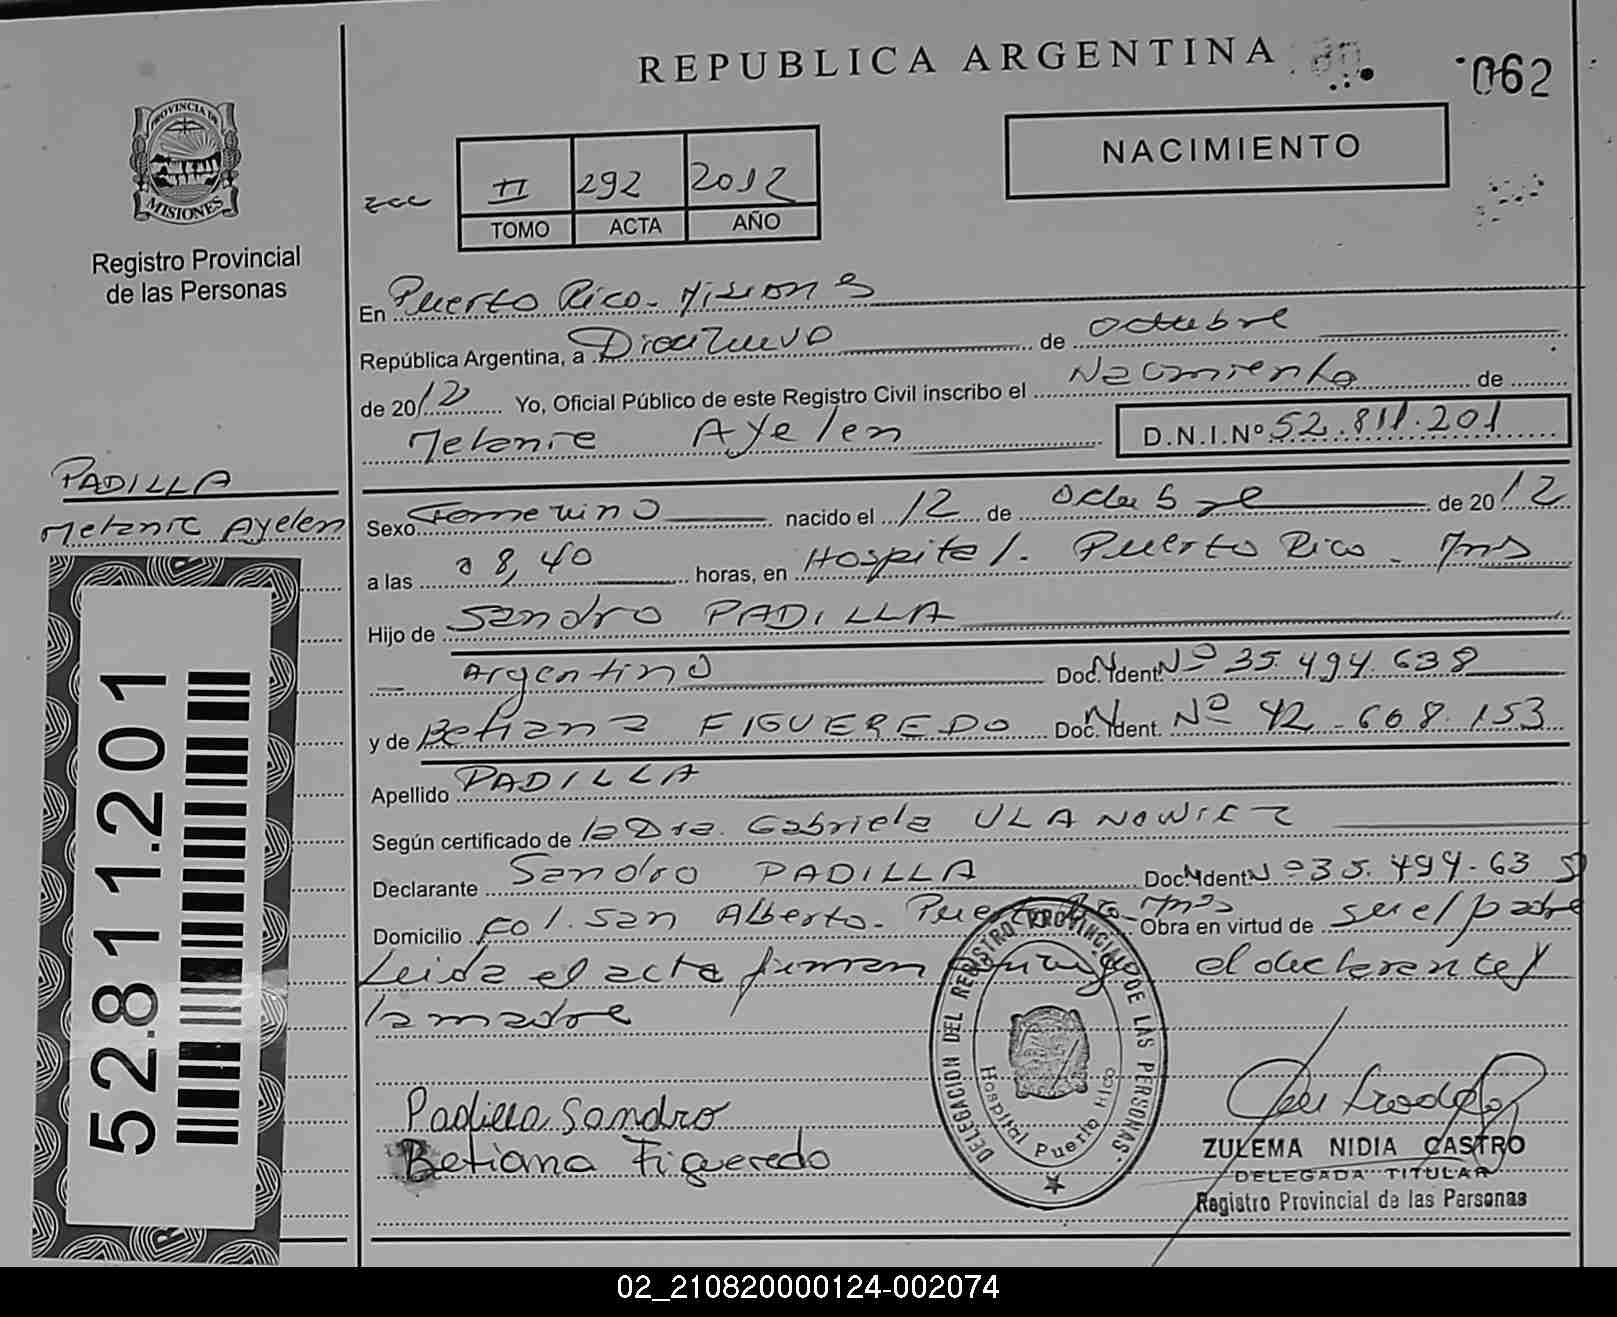 REPUBLICA ARGENTINA
062
NACIMIENTO
PROVINCIA DE
MISIONES
Registro Provincial
de las Personas
II 292 2012
TOMO ACTA AÑO
En Puerto Rico - Misiones
República Argentina, a Diecinuevo de octubre
de 2012 Yo, Oficial Público de este Registro Civil inscribo el Nacimiento de
Melanie Ayelen D.N.I.Nº 52.811.201
PADILLA
Melanie Ayelen
Sexo Femenino nacido el 12 de Octubre de 2012
a las 8,40 horas, en Hospital. Puerto Rico - Mns
Hijo de Sandro PADILLA
Argentino Doc. Ident. Nº 35.494.638
y de Betiana FIGUEREDO Doc. Ident. Nº 42.668.153
Apellido PADILLA
Según certificado de la Dra. Gabriela ULANOWICZ
Declarante Sandro PADILLA Doc. Ident. Nº 35.494.638
Domicilio Col. San Alberto - Puerto Rico - Mns Obra en virtud de ser el padre
Leida el acta firman conmigo el declarante y
la madre
Padilla Sandro
Betiana Figueredo
DELEGACION DEL REGISTRO PROVINCIAL DE LAS PERSONAS
Hospital Puerto Rico
ZULEMA NIDIA CASTRO
DELEGADA TITULAR
Registro Provincial de las Personas
52.811.201
02_210820000124-002074